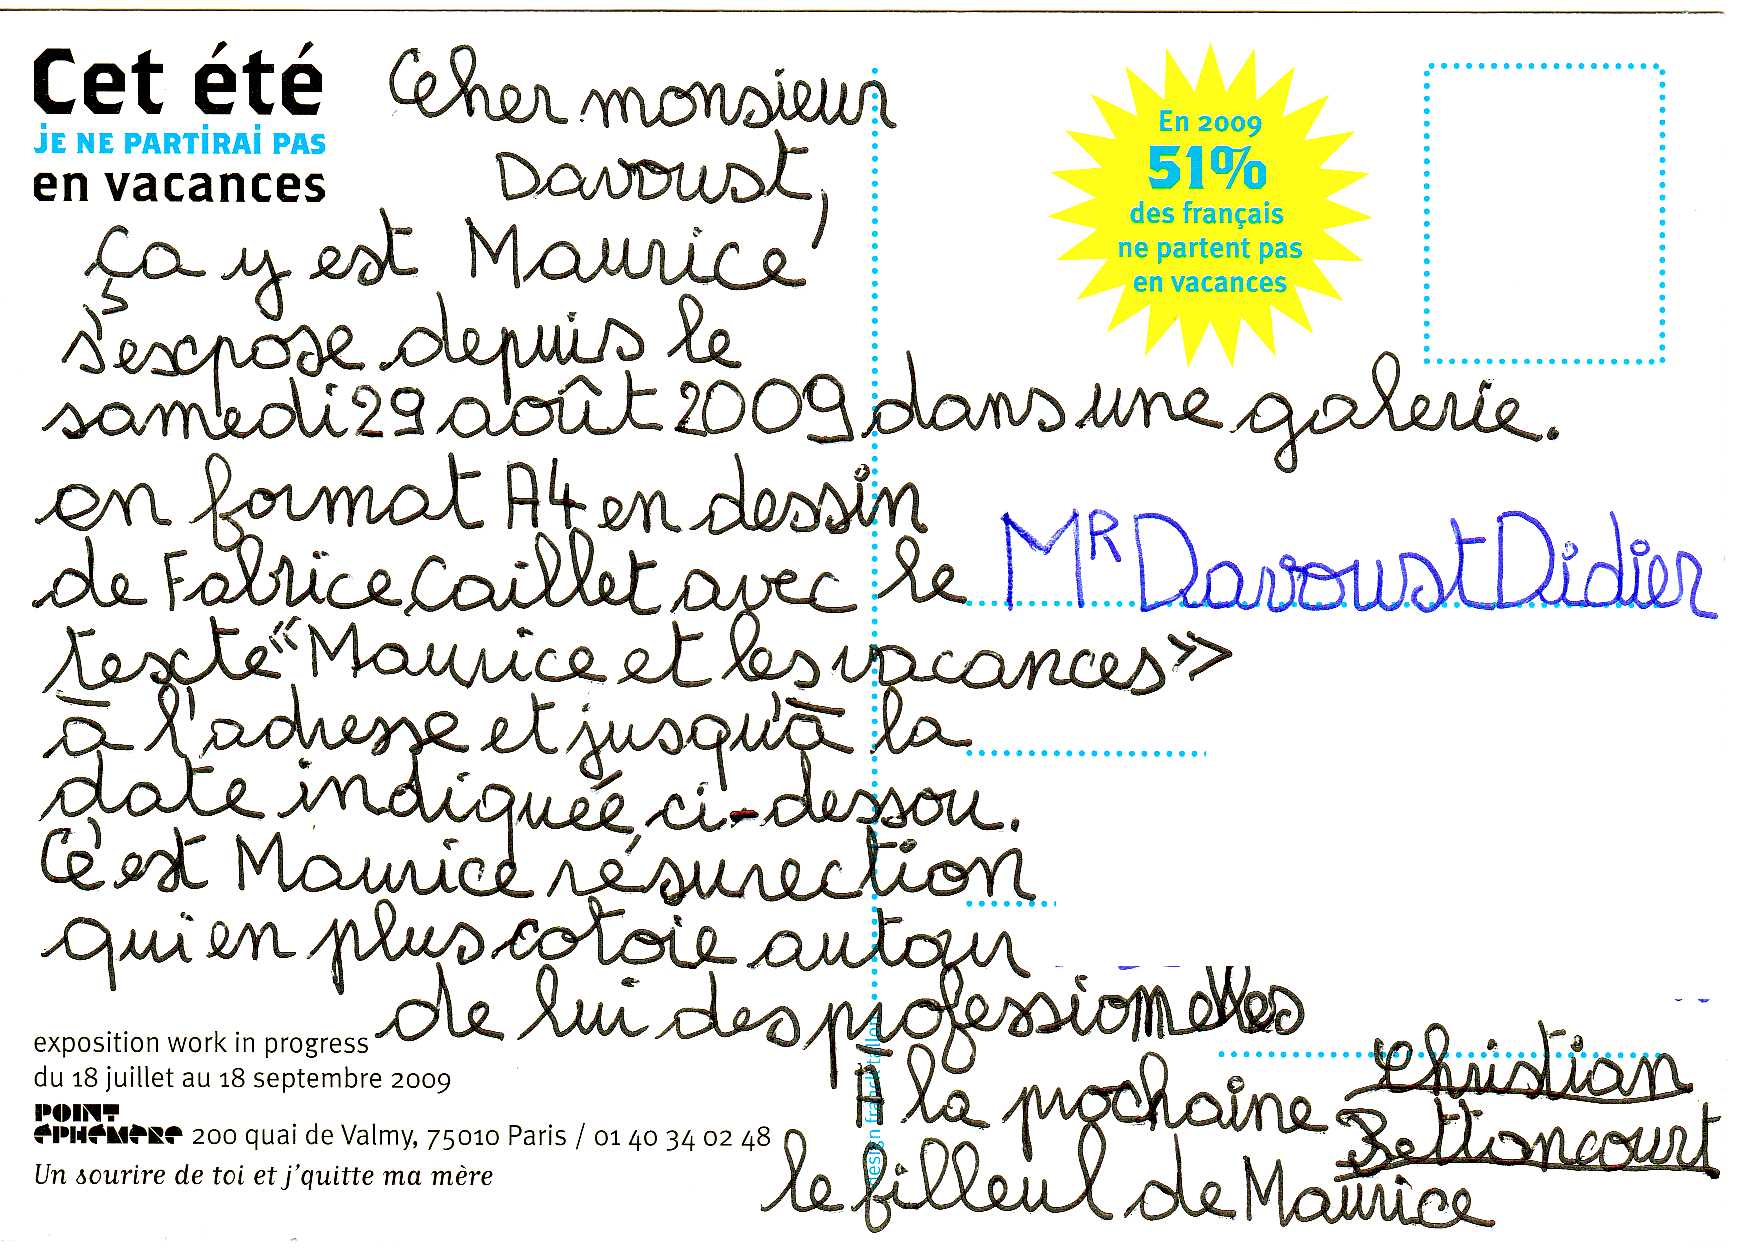 Cet été
JE NE PARTIRAI PAS
en vacances
Ceher monsieur
Davoust,
ça y est Maurice
s'expose depuis le
samedi 29 août 2009 dans une galerie.
en format A4 en dessin
de Fabrice Caillet avec le
texte "Maurice et les vacances»
à l'adresse et jusqu'à la
date indiquée ci-dessou.
Ce'est Maurice résurection
qui en plus cotoie autour
de lui des professionelles
A la prochaine
le filleul de Maurice
Christian
Bettoncourt
En 2009
51%
des français
ne partent pas
en vacances
MR Davoust Didier
exposition work in progress
du 18 juillet au 18 septembre 2009
POINT
éPHéMèRE 200 quai de Valmy, 75010 Paris / 01 40 34 02 48
Un sourire de toi et j'quitte ma mère